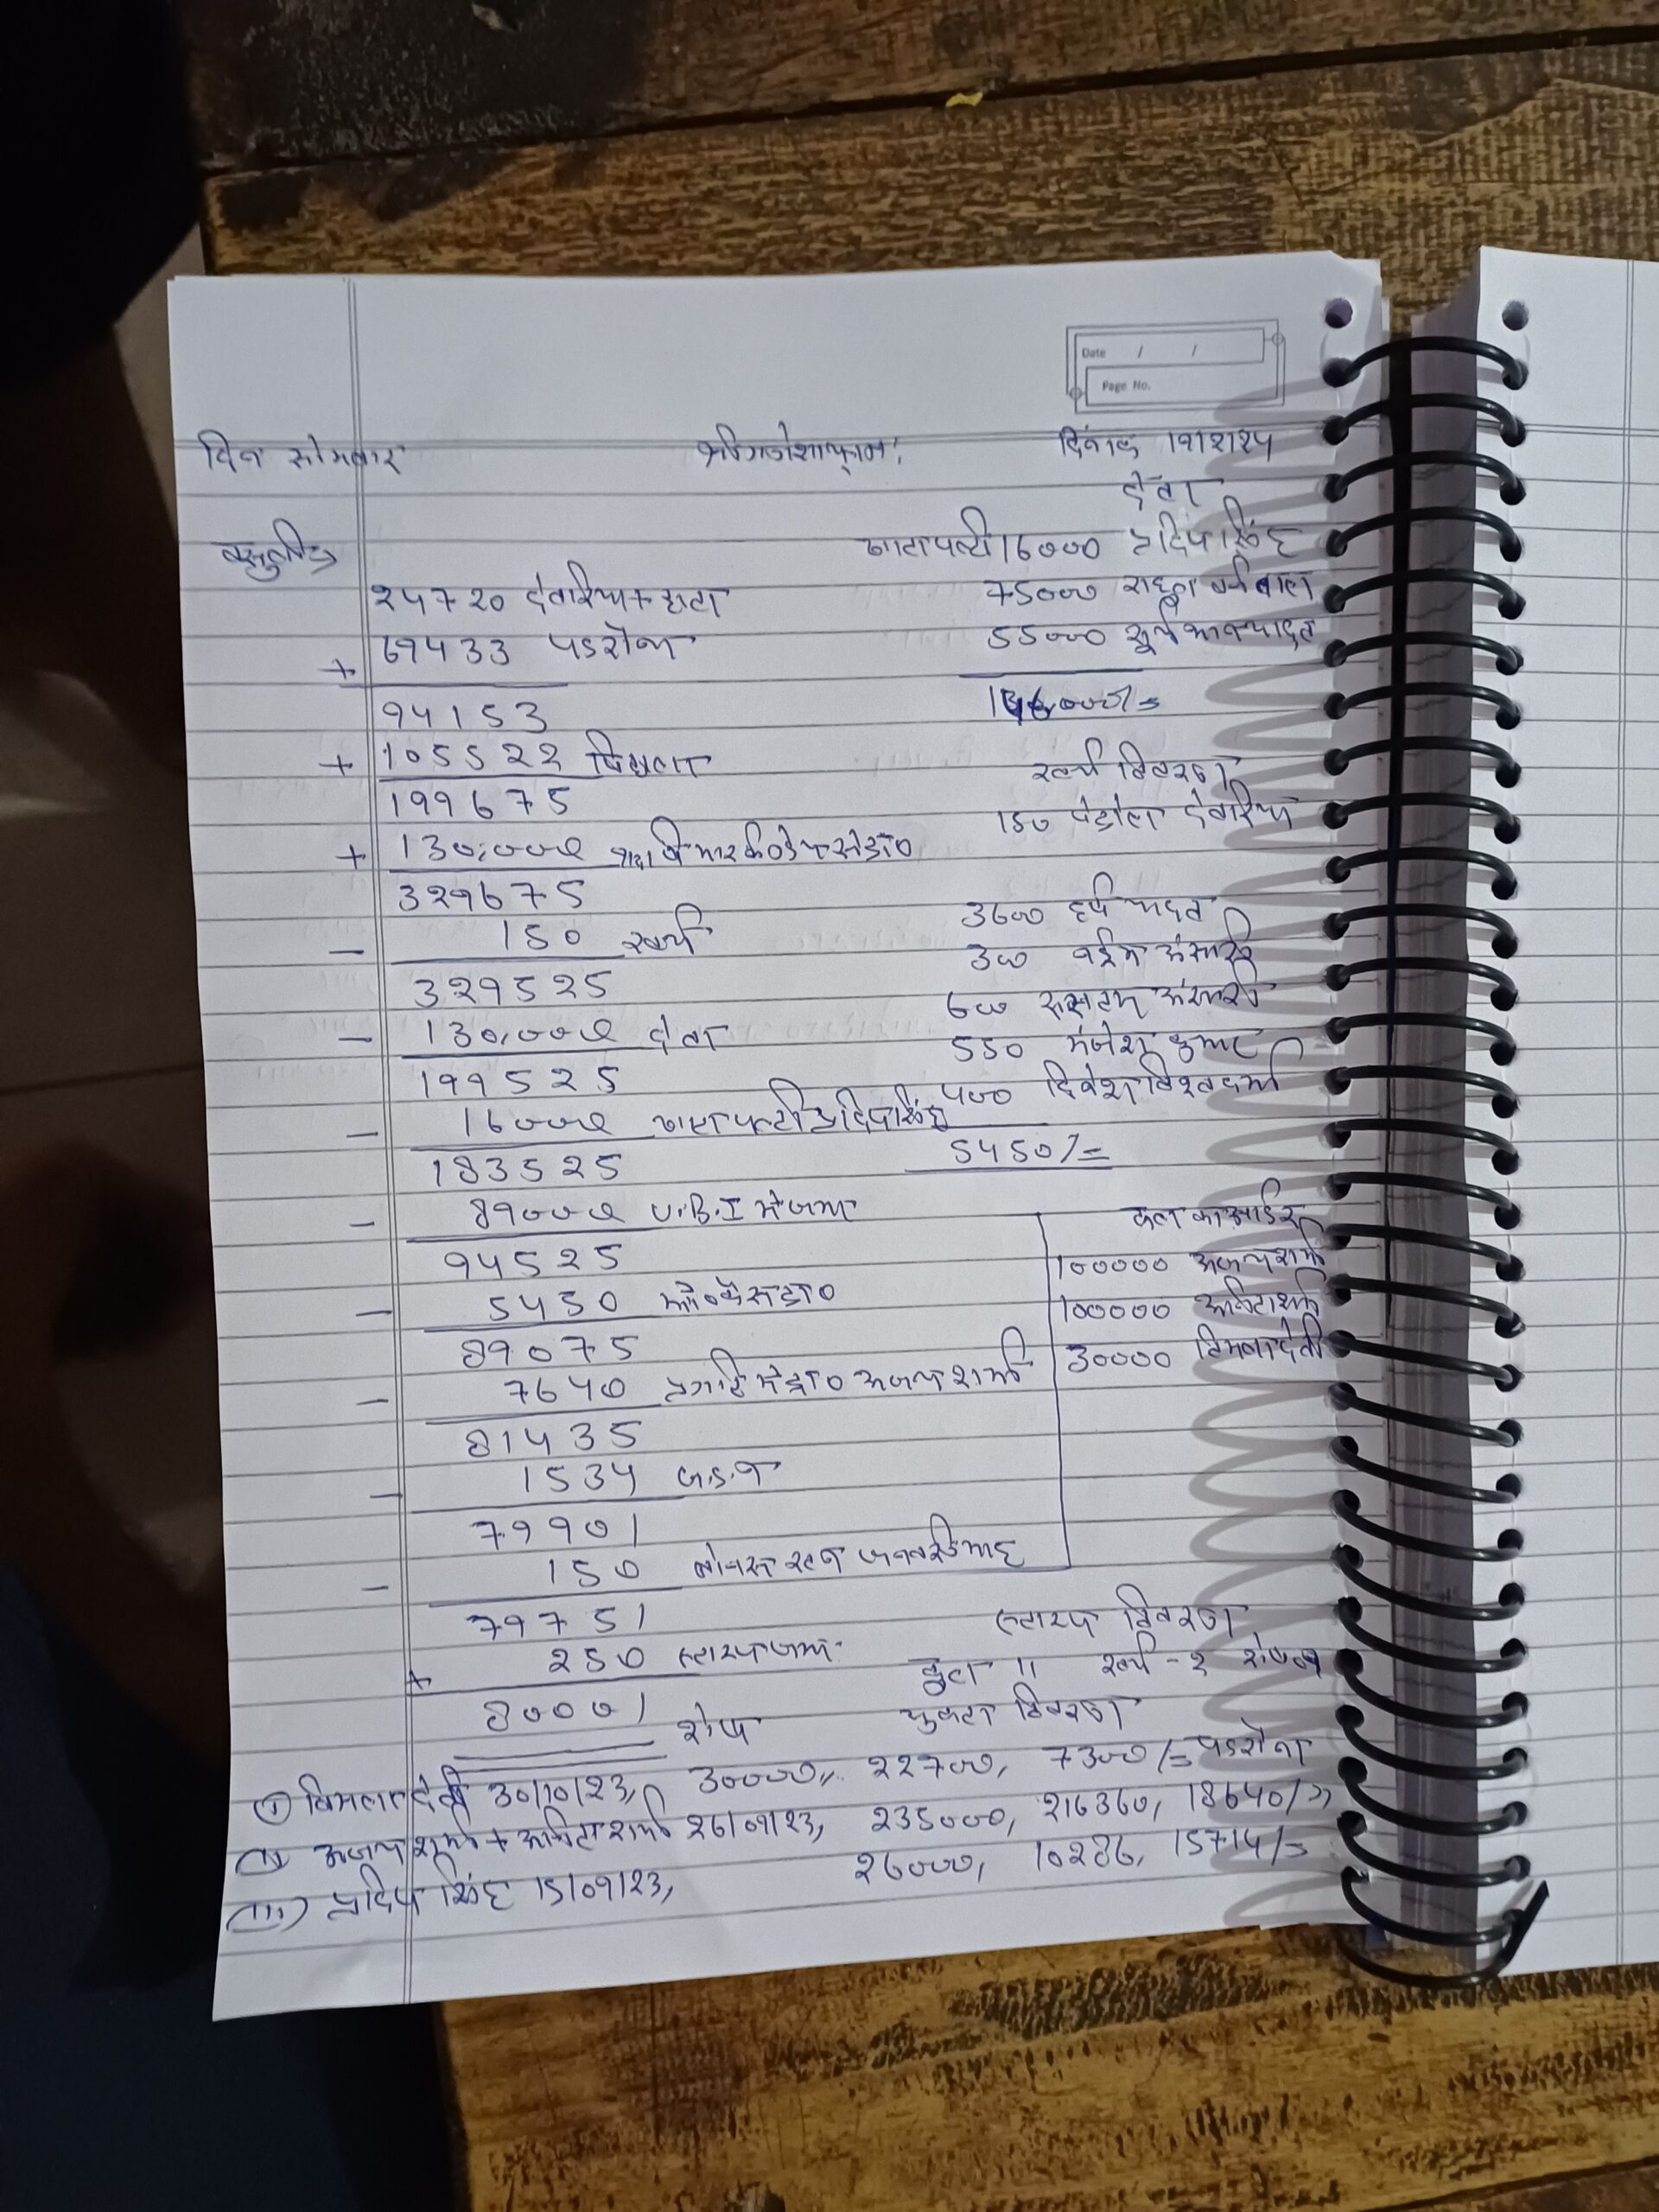 Date / /
Page No.
दिन सोमवार श्री गणेशाय नमः दिनांक 19/2/24
देना
वसुली
खातापल्टी 16000 प्रदिप सिंह
24720 देवरिया + हाटा
75000 राहुल बर्नवाल
+ 69433 पडरौना
55000 सूर्यभान यादव
94153
146000/=
+ 105522
199675
खर्च विवरण
+ 130,000
150 पेट्रोल देवरिया
329675
3600 हर्ष यादव
- 150 खर्च
300 नईम अंसारी
329525
600 रुस्तम अंसारी
- 130,000 देना
550 मंजेश कुमार
199525
400 दिनेश विश्वकर्मा
- 16000 खातापल्टी प्रदिप सिंह
5450/=
183525
- 89000 U.B.I मे जमा
कल का आर्डर
94525
100000 अजय शर्मा
- 5450
100000 अनिता शर्मा
89075
30000 विमला देवी
- 7640 अजय शर्मा
81435
- 1534
79901
- 150
79751
स्टाम्प विवरण
+ 250 स्टाम्प जमा
कुल 11 खर्च - 2 शेष
80001 शेष
चुकता विवरण
(I) विमला देवी 30/10/23, 30000, 22700, 7300/= पडरौना
(II) अजय शर्मा + अनिता शर्मा 26/09/23, 235000, 216360, 18640/=
(III) प्रदिप सिंह 15/09/23, 26000, 10286, 15714/=